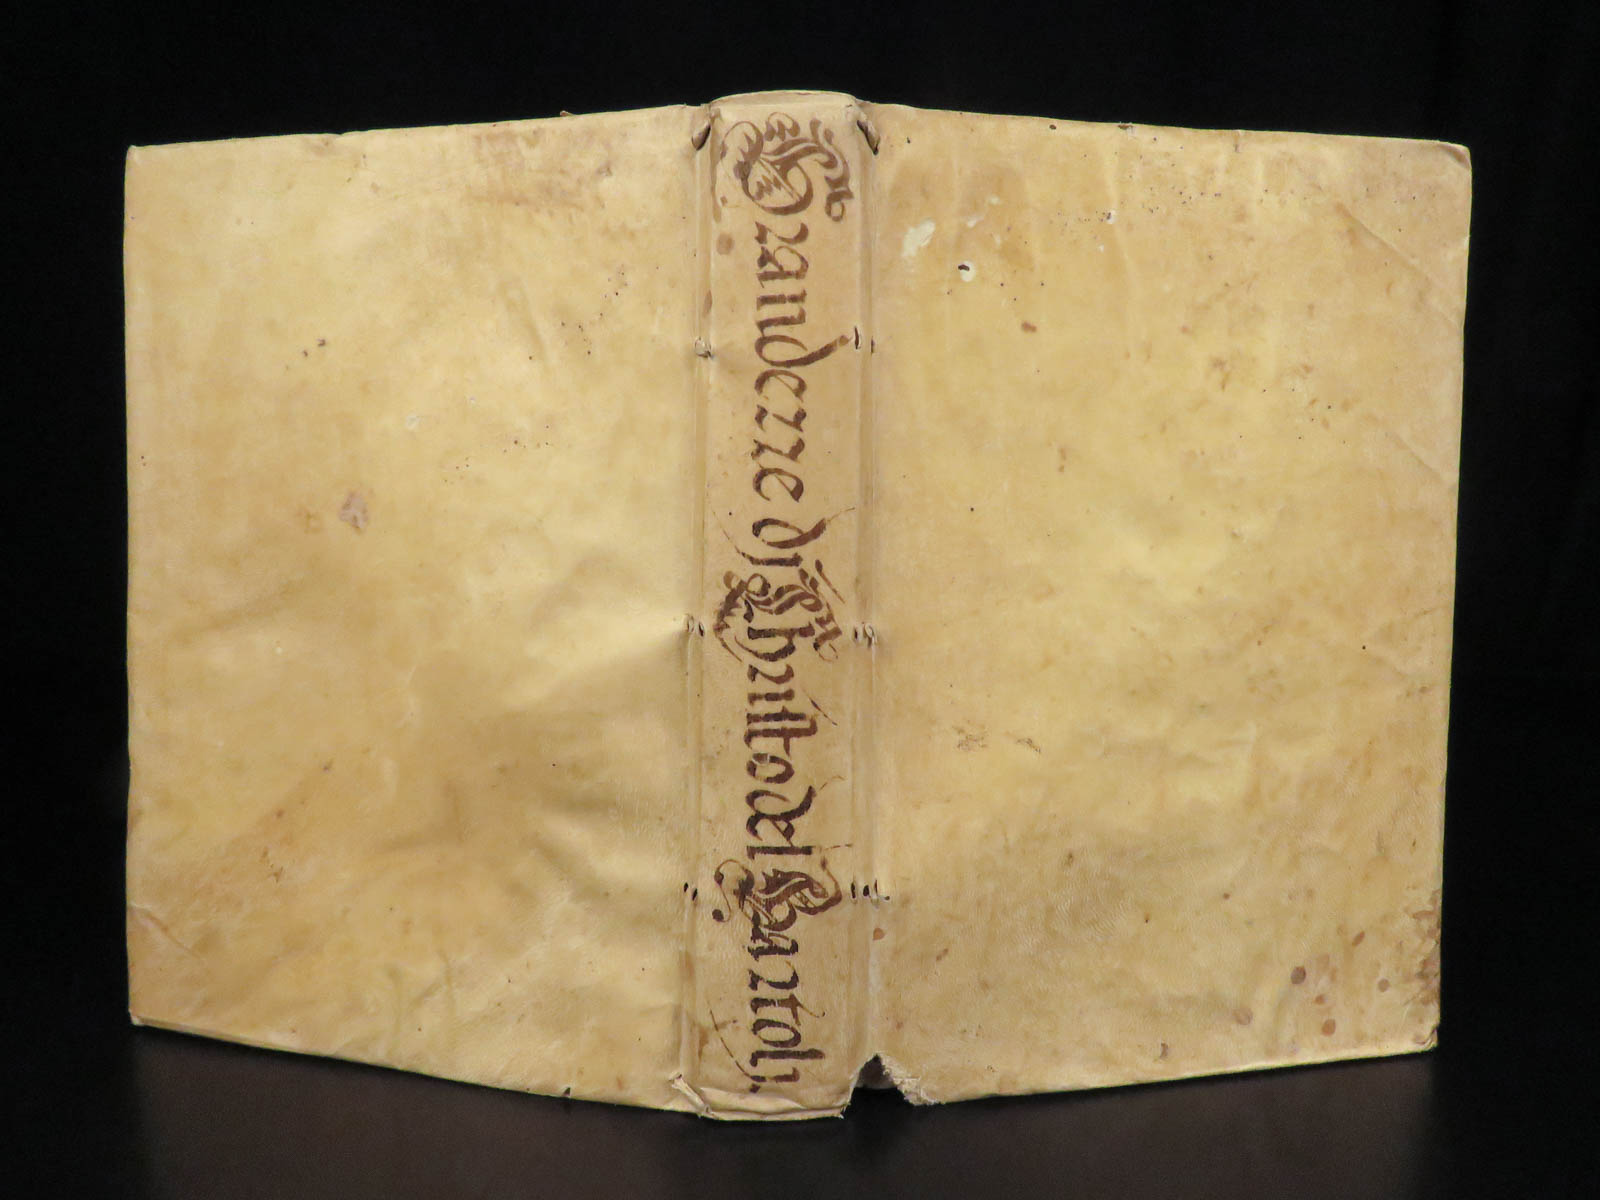 Grandezze di Christo del Bartoli.